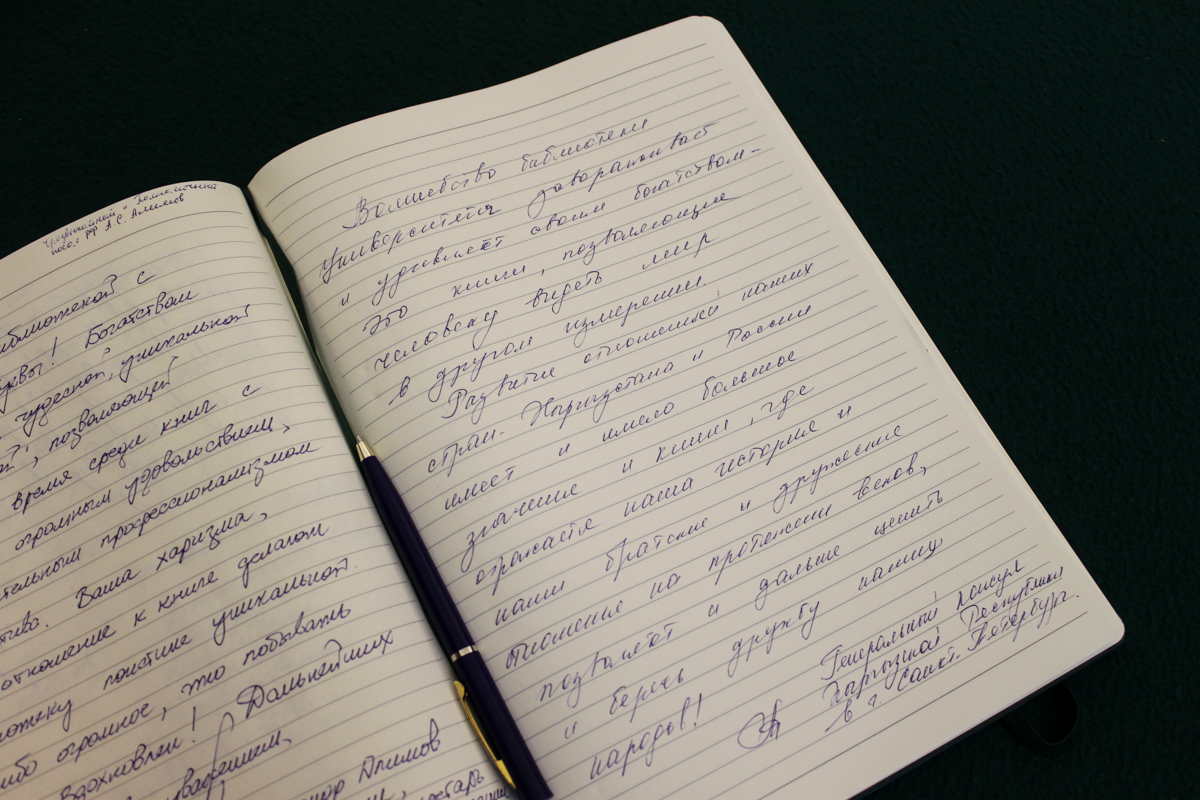 Чрезвычайный и Полномочный
посол РФ А.С. Алимов
библиотекой с
буквы! Богатством
чудесной, уникальной
, позволяющей
время среди книг с
огромным удовольствием,
профессионализмом
Ваша харизма,
отношение к книге делают
поистине уникальной.
огромное, что побывать
вдохновлен! Дальнейших
уважением,
Алимов
Волшебство библиотеки
университета завораживает
и удивляет своим богатством-
это книги, позволяющие
человеку видеть мир
в другом измерении.
Развитие отношений наших
стран- Кыргызстана и России
имеет и имело большое
значение и книги, где
отражается наша история и
наши братские и дружеские
отношение на протяжении веков,
позволяет и дальше ценить
и беречь дружбу наших
народов!
Генеральный консул
Кыргызской Республики
в г. Санкт-Петербург.